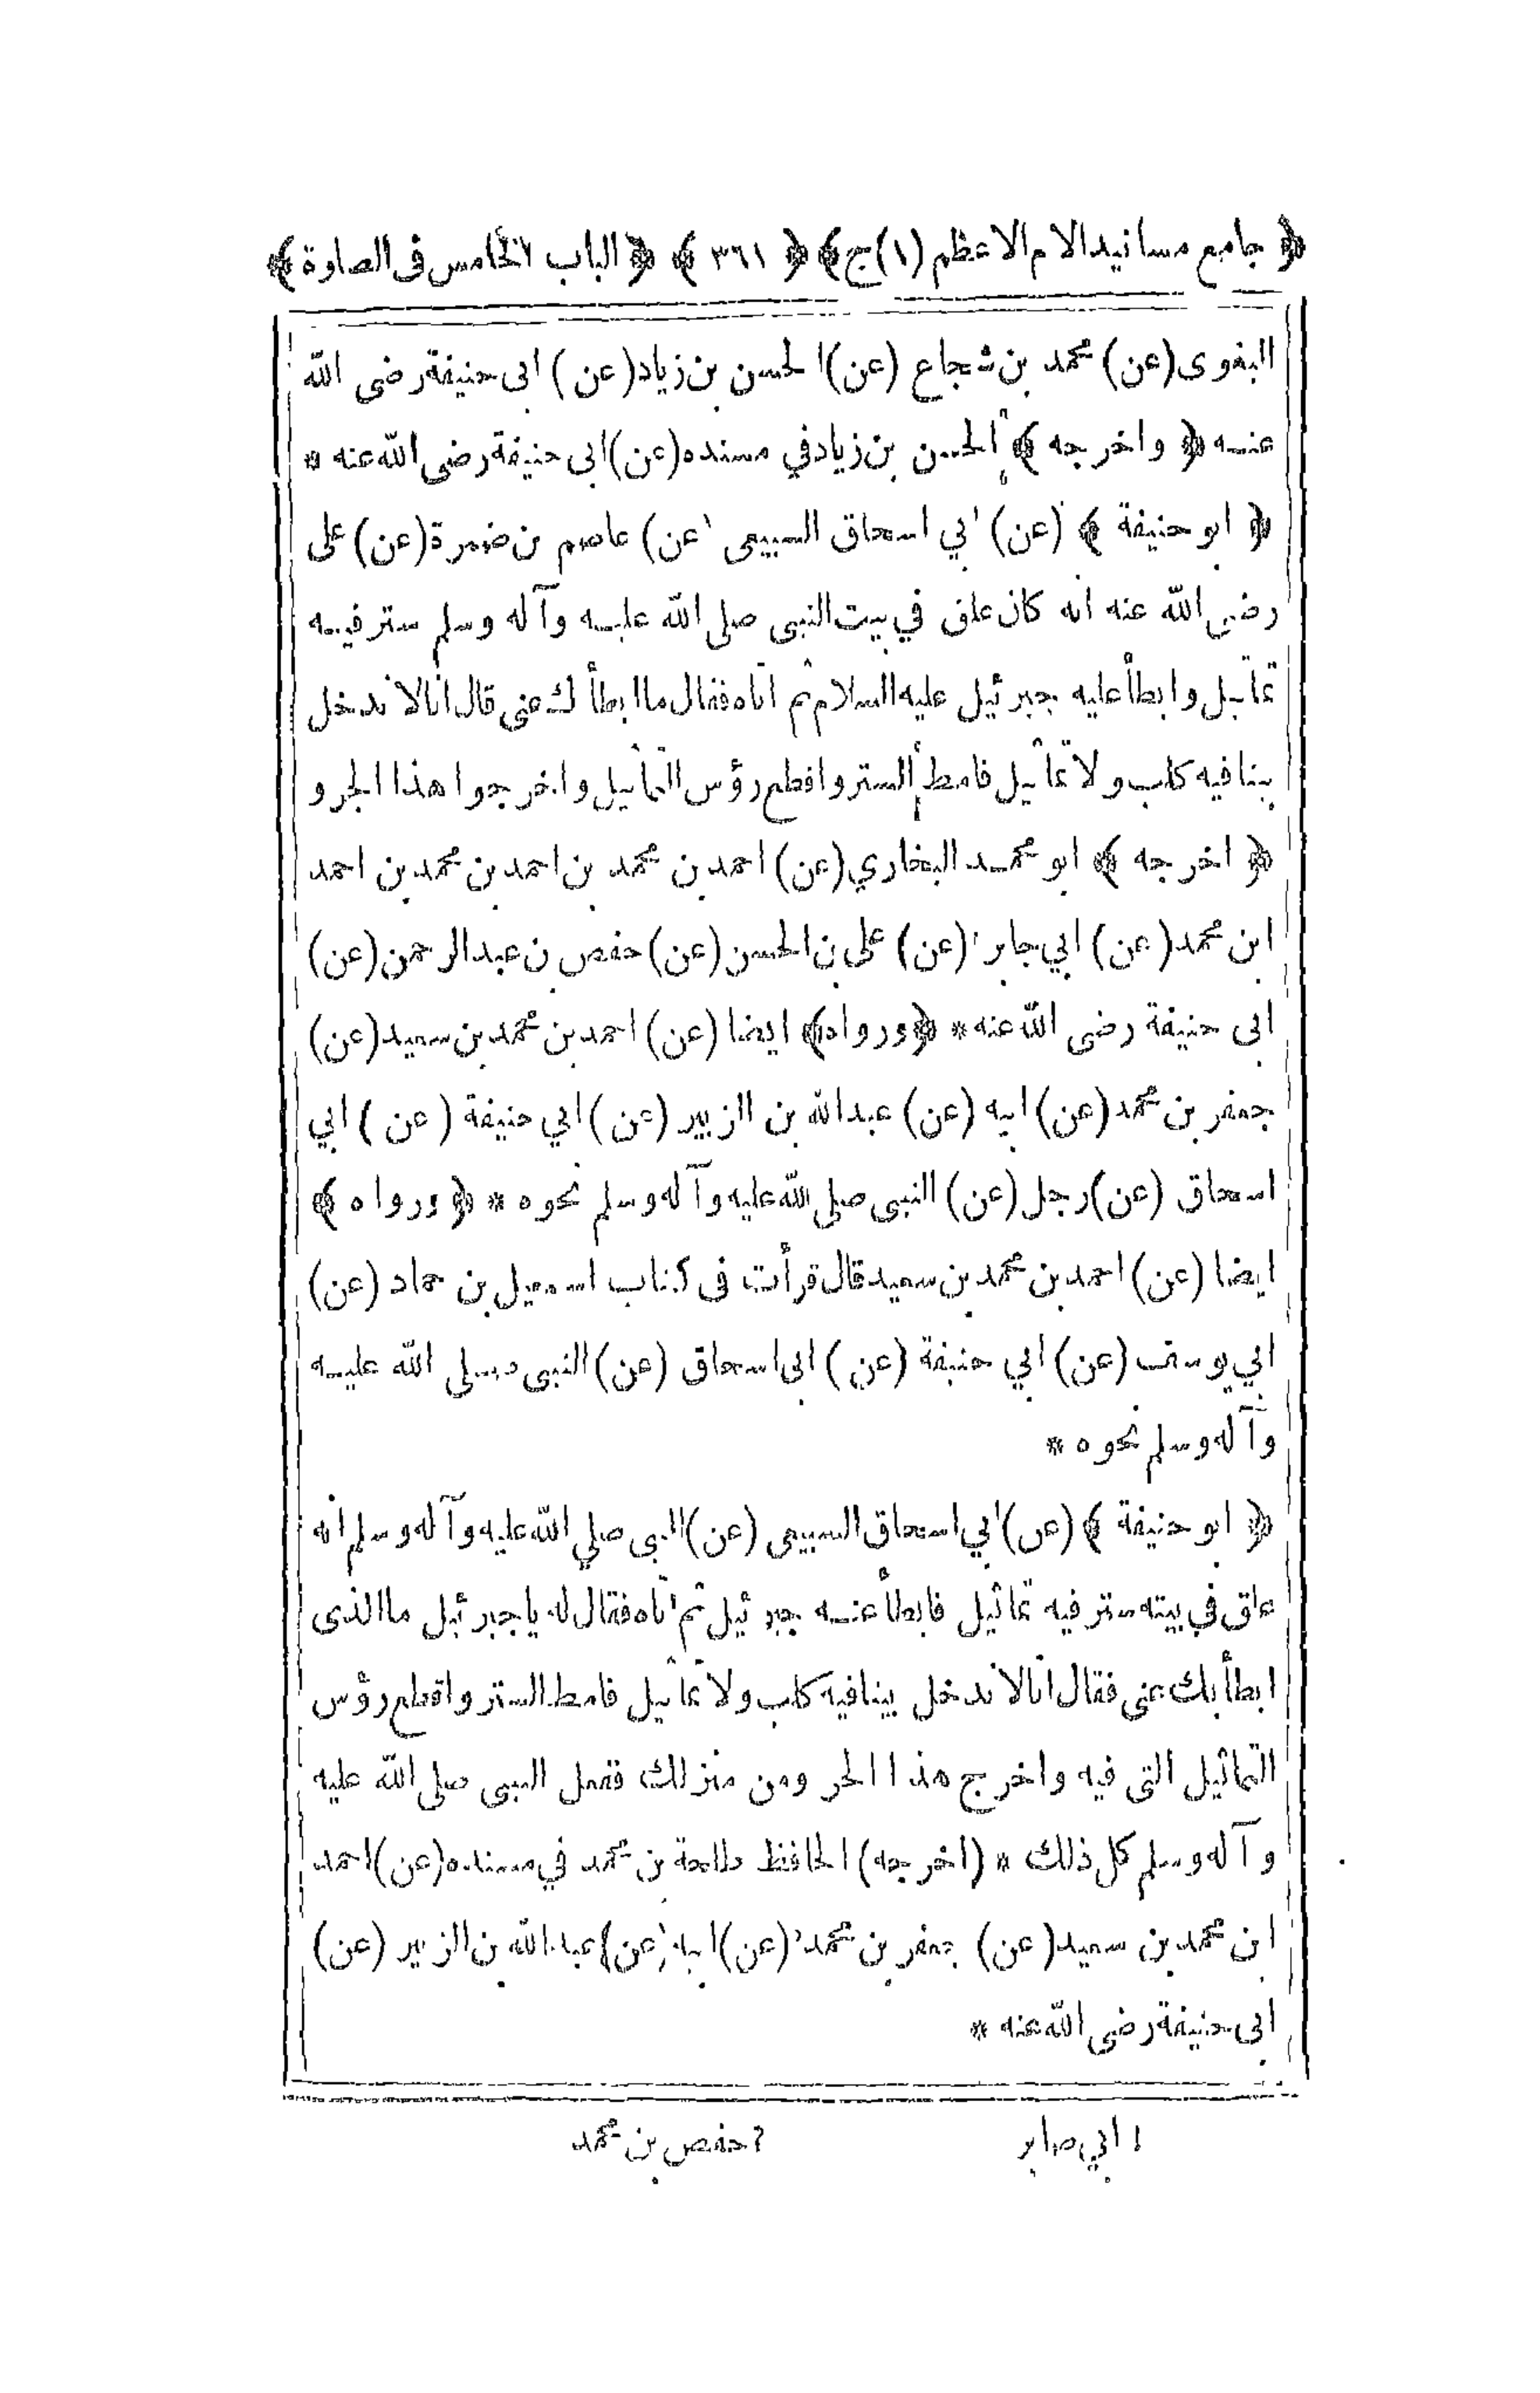 ﴿ جامع مسانيد الامام الاعظم (١) ج﴾ ﴿ ٣٦١ ﴾ ﴿ الباب الخامس فى الصلوة ﴾
البغوى (عن) محمد بن شجاع (عن) الحسن بن زياد (عن) ابى حنيفة رضى الله
عنه ﴿ واخرجه ﴾ الحسن بن زياد في مسنده (عن) ابى حنيفة رضى الله عنه *
﴿ ابو حنيفة ﴾ (عن) ابي اسحاق السبيعى (عن) عاصم بن ضمرة (عن) على
رضى الله عنه انه كان علق في بيت النبى صلى الله عليه وآله وسلم ستر فيه
تماثيل وابطأ عليه جبرئيل عليه السلام ثم اتاه فقال ما ابطأ ك عنى قال انا لا ندخل
بيتا فيه كلب ولا تماثيل فامط الستر واقطع رؤس التماثيل واخرجوا هذا الجرو
﴿ اخرجه ﴾ ابو محمد البخاري (عن) احمد بن محمد بن احمد بن محمد بن احمد
ابن محمد (عن) ابي جابر١ (عن) على بن الحسن (عن) حفص بن عبد الرحمن (عن)
ابى حنيفة رضى الله عنه * ﴿ورواه﴾ ايضا (عن) احمد بن محمد بن سعيد (عن)
جعفر بن محمد (عن) ابيه (عن) عبد الله بن الزبير (عن) ابي حنيفة (عن) ابي
اسحاق (عن) رجل (عن) النبى صلى الله عليه وآله وسلم نحوه * ﴿ ورواه ﴾
ايضا (عن) احمد بن محمد بن سعيد قال قرأت فى كتاب اسمعيل بن حماد (عن)
ابي يوسف (عن) ابي حنيفة (عن) ابى اسحاق (عن) النبى صلى الله عليه
وآله وسلم نحوه *
﴿ ابو حنيفة ﴾ (عن) ابي اسحاق السبيعى (عن) النبى صلي الله عليه وآله وسلم انه
علق في بيته ستر فيه تماثيل فابطأ عنه جبرئيل ثم اتاه فقال له يا جبرئيل ما الذى
ابطأ بك عنى فقال انا لا ندخل بيتا فيه كلب ولا تماثيل فامط الستر واقطع رؤس
التماثيل التى فيه واخرج هذا الجرو من منزلك ففعل النبى صلى الله عليه
وآله وسلم كل ذلك * (اخرجه) الحافظ طلحة بن محمد في مسنده (عن) احمد
ابن محمد بن سعيد (عن) جعفر بن محمد٢ (عن) ابيه (عن) عبد الله بن الزبير (عن)
ابى حنيفة رضى الله عنه *
١ ابي صابر
٢ حفص بن محمد